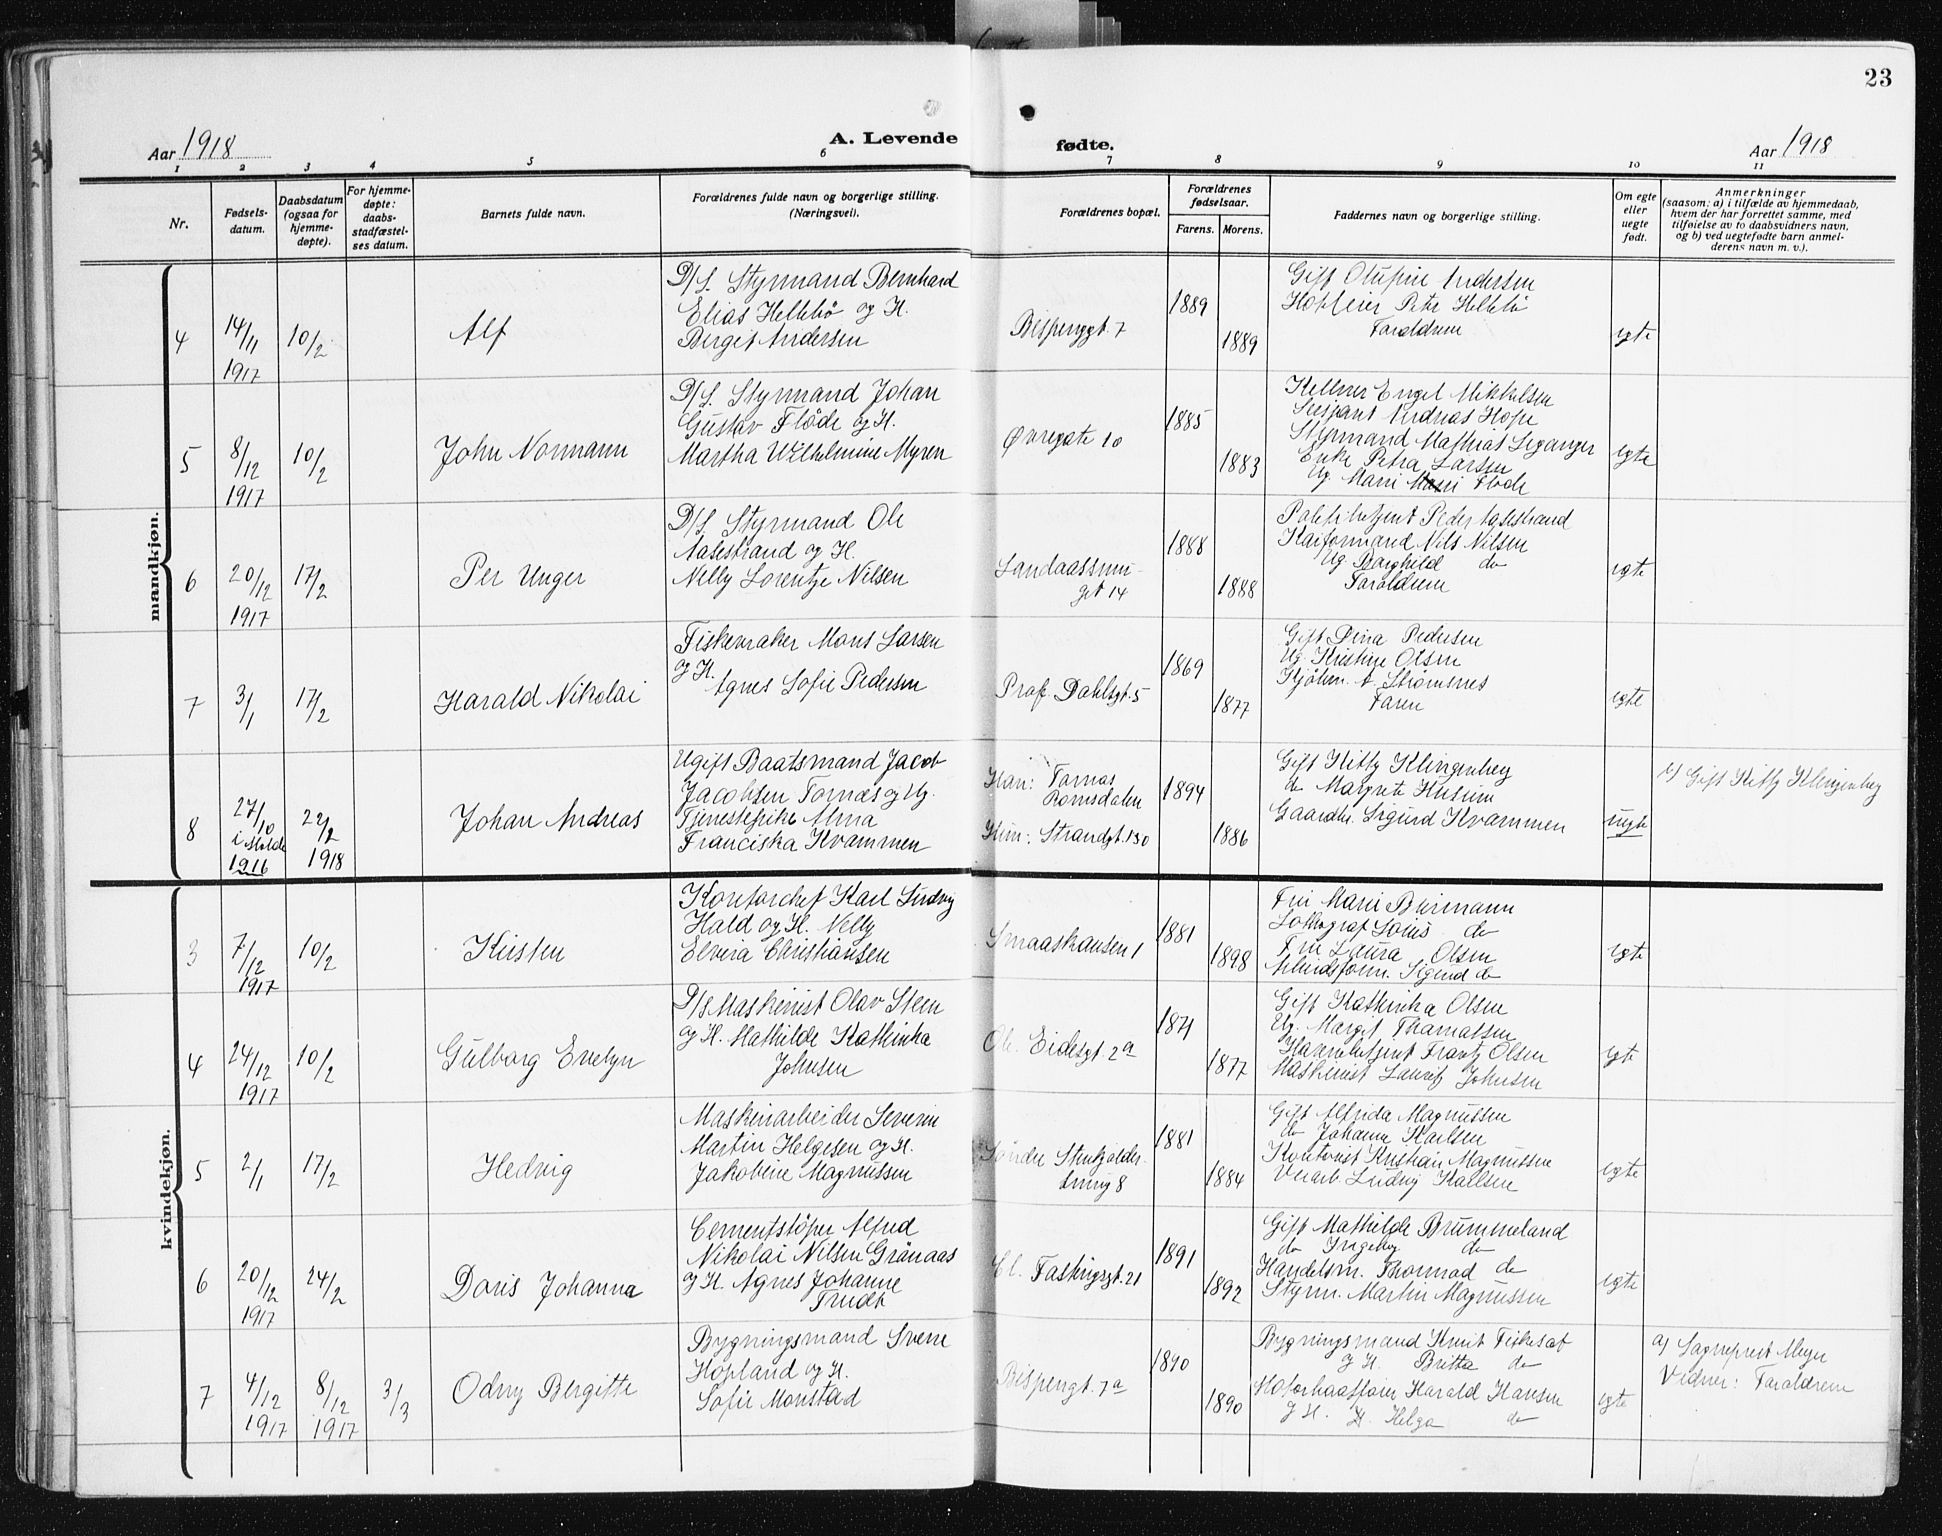 23
Aar 1918
A. Levende fødte.
Aar 1918
1 2 3 4 5 6 7 8 9 10 11
Nr.
Fødsels-
datum.
Daabsdatum
(ogsaa for
hjemme-
døpte).
For hjemme-
døpte:
daabs-
stadfæstel-
ses datum.
Barnets fulde navn.
Forældrenes fulde navn og borgerlige stilling.
(Næringsvei).
Forældrenes bopæl.
Forældrenes
fødselsaar.
Farens. Morens.
Faddernes navn og borgerlige stilling.
Om egte
eller
uegte
født.
Anmerkninger
(saasom: a) i tilfælde av hjemmedaab,
hvem der har forrettet samme, med
tilføielse av to daabsvidners navn,
og b) ved uegtefødte barn anmel-
derens navn m. v.).
mandkjøn.
4
14/11
1917
10/2
Alf
D/S. Styrmand Bernhard
Elias Hellebø og H.
Birgit Andersen
Bispenggt. 7
1889
1889
Gift Olufine Andersen
Petr Hellebø
Foraldrene
egte
5
8/12
1917
10/2
John Normann
D/S. Styrmand Johan
Gustav Fløde og H.
Martha Wilhelmine Myren
Øvregate 10
1885
1883
Kellner Engel Mikkelsen
Sersjant Andreas Hope
Styrmand Mathias Leganger
Enke Petra Larsen
Ug. Marie Fløde
egte
6
20/12
1917
17/2
Per Unger
D/S. Styrmand Ole
Aasestrand og H.
Nelly Lorentze Nilsen
Landaassvin-
get 14
1888
1888
Politibetjent Peder Aasestrand
Kaiformand Nils Nilsen
Ug. Borghild do
Foraldrene
egte
7
3/1
17/2
Harald Nikolai
Fiskevraker Mons Larsen
og H.
Agnes Sofie Pedersen
Prof. Dahlsgt. 5
1869
1877
Gift Dina Pedersen
Ug. Kristine Olsen
Kjøbm. A. Strømsnes
Faren
egte
8
27/10
i Molde
1916
22/2
1918
Johan Andreas
Ugift Baatsmand Jacob
Jacobsen Tornæs og Ug.
Tjenestepike Alma
Franciska Kvammen
Han: Tornæs
Romsdalen
Hun: Strandgt. 130
1894
1886
Gift Kitty Klingenberg
do Margrete Husum
Gaardbr. Sigurd Kvammen
uegte
b) Gift Kitty Klingenberg
kvindekjøn.
3
7/12
1917
10/2
Kirsten
Kontorchef Karl Ludvig
Hald og H. Nelly
Elvira Christiansen
Smaaskansen 1
1881
1898
Fru Marie Burmann
Louis do
Fru Laura Olsen
Arbeidsform. Sigurd do
egte
4
24/12
1917
10/2
Gulborg Evelyn
D/S Maskinist Olav Steen
og H. Mathilde Kathinka
Johnsen
Ole Eidesgt. 2a
1871
1877
Gift Kathinka Olsen
Ug. Margit Thomassen
Havnebetjent Frantz Olsen
Maskinist Lauritz Johnsen
egte
5
2/1
17/2
Hedvig
Maskinarbeider Severin
Martin Helgesen og H.
Jakobine Magnussen
Søndre Stenkjelder-
smug 8
1881
1884
Gift Alfrida Magnussen
do Johanna Karlsen
Kontorist Kristian Magnussen
Verarb. Ludvig Karlsen
egte
6
20/12
1917
24/2
Doris Johanna
Cementstøper Alfred
Nikolai Nilsen Grønaas
og H. Agnes Johanne
Trudt
Cl. Fastingsgt. 21
1891
1892
Gift Mathilde Brummeland
do Ingeborg do
Handelsm. Thormod do
Styrm. Martin Magnussen
egte
7
4/12
1917
8/12
1917
3/3
Odny Bergitte
Bygningsmand Sverre
Hopland og H.
Sofie Monstad
Bispengt. 7a
1890
1890
Bygningsmand Knut Fiksest
og H. Britta do
Harald Hansen
og H. H. Helga do
egte
a) Sogneprest Meyer
Vidner: Foraldrene